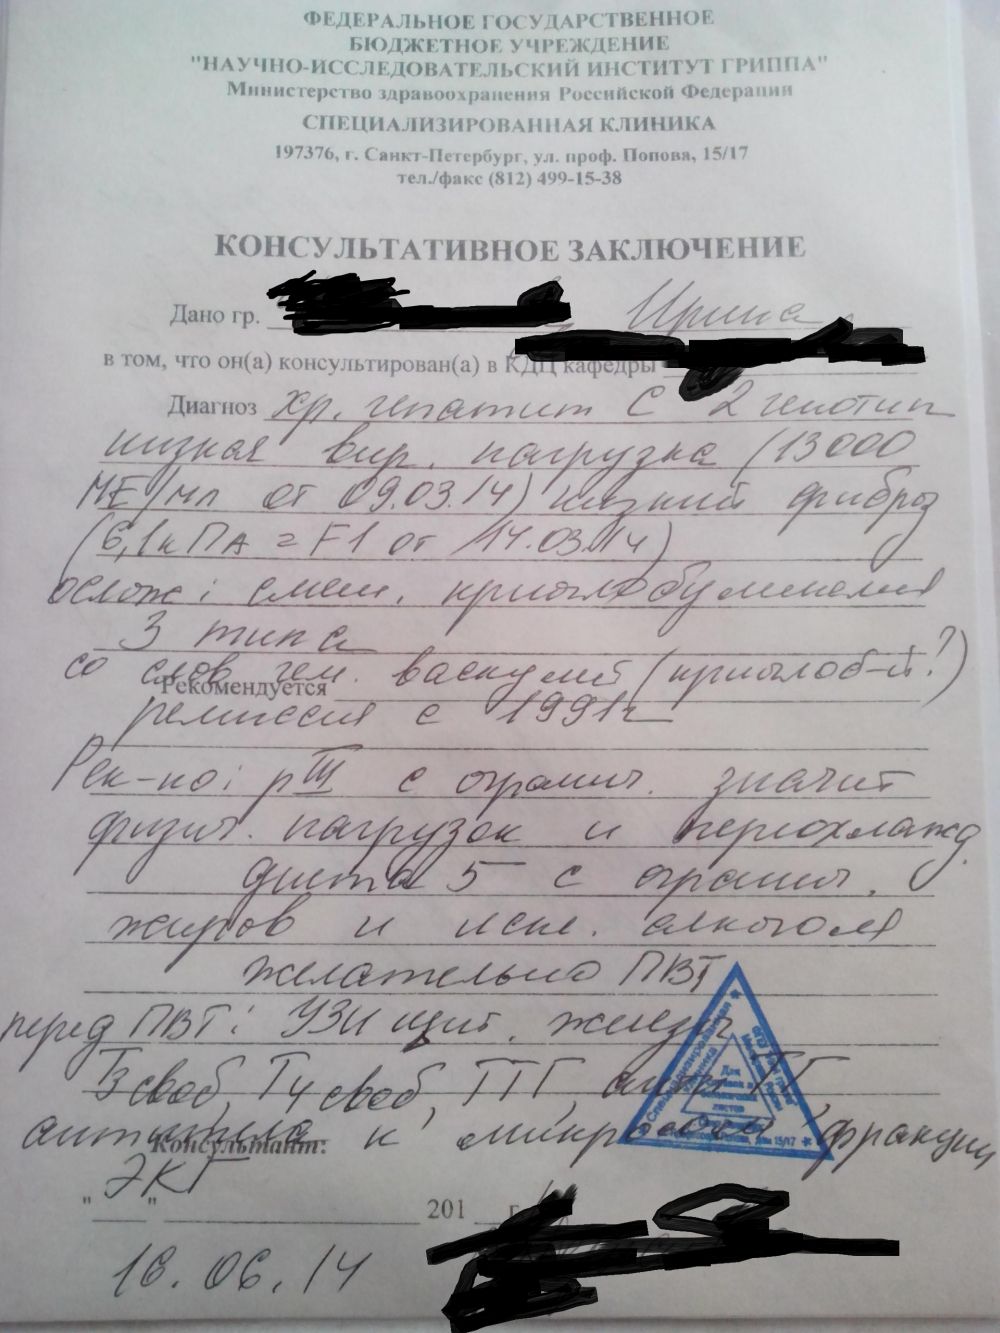 ФЕДЕРАЛЬНОЕ ГОСУДАРСТВЕННОЕ
БЮДЖЕТНОЕ УЧРЕЖДЕНИЕ
"НАУЧНО-ИССЛЕДОВАТЕЛЬСКИЙ ИНСТИТУТ ГРИППА"
Министерство здравоохранения Российской Федерации
СПЕЦИАЛИЗИРОВАННАЯ КЛИНИКА
197376, г. Санкт-Петербург, ул. проф. Попова, 15/17
тел./факс (812) 499-15-38
КОНСУЛЬТАТИВНОЕ ЗАКЛЮЧЕНИЕ
Дано гр. Ирина
в том, что он(а) консультирован(а) в КДЦ кафедры
Диагноз хр. гепатит С 2 генотип
низкая вир. нагрузка (13000
МЕ/мл от 09.03.14) низкий фиброз
(6,1кПА = F1 от 14.03.14)
ослож: смеш. криоглобулинемия
3 типа
со слов гем. васкулит (криоглоб-й?)
Рекомендуется
ремиссия с 1991г
Рек-но: рIII с огранич. значит
физич. нагрузок и переохлажд.
диета 5 с огранич.
жиров и искл. алкоголя
желательно ПВТ
перед ПВТ: УЗИ щит. железы
Т3 своб, Т4 своб, ТТГ, анти ТГ,
антитела к микросом. фракции
Консультант:
ЭКГ
" " 201 г.
Специализированная клиника
Для
листов
18.06.14